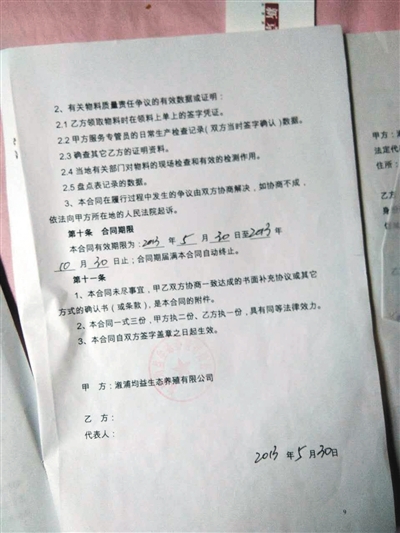 2、有关物料质量责任争议的有效数据或证明：
2.1 乙方领取物料时在领料上单上的签字凭证。
2.2 甲方服务专管员的日常生产检查记录（双方当时签字确认）数据。
2.3 确查其它乙方的证明资料。
2.4 当地有关部门对物料的现场检查和有效的检测作用。
2.5 盘点表记录的数据。
3、本合同在履行过程中发生的争议由双方协商解决，如协商不成，
依法向甲方所在地的人民法院起诉。
第十条 合同期限
本合同有效期限为：2013 年 5 月 30 日至 2013 年
10 月 30 日止；合同期届满本合同自动终止。
第十一条
1、本合同未尽事宜，甲乙双方协商一致达成的书面补充协议或其它
方式的确认书（或条款），是本合同的附件。
2、本合同一式三份，甲方执二份、乙方执一份，具有同等法律效力。
3、本合同自双方签字盖章之日起生效。
甲 方：溆浦均益生态养殖有限公司
乙 方：
代表人：
2013 年 5 月 30 日
甲方：
法定代
住所：
乙方：